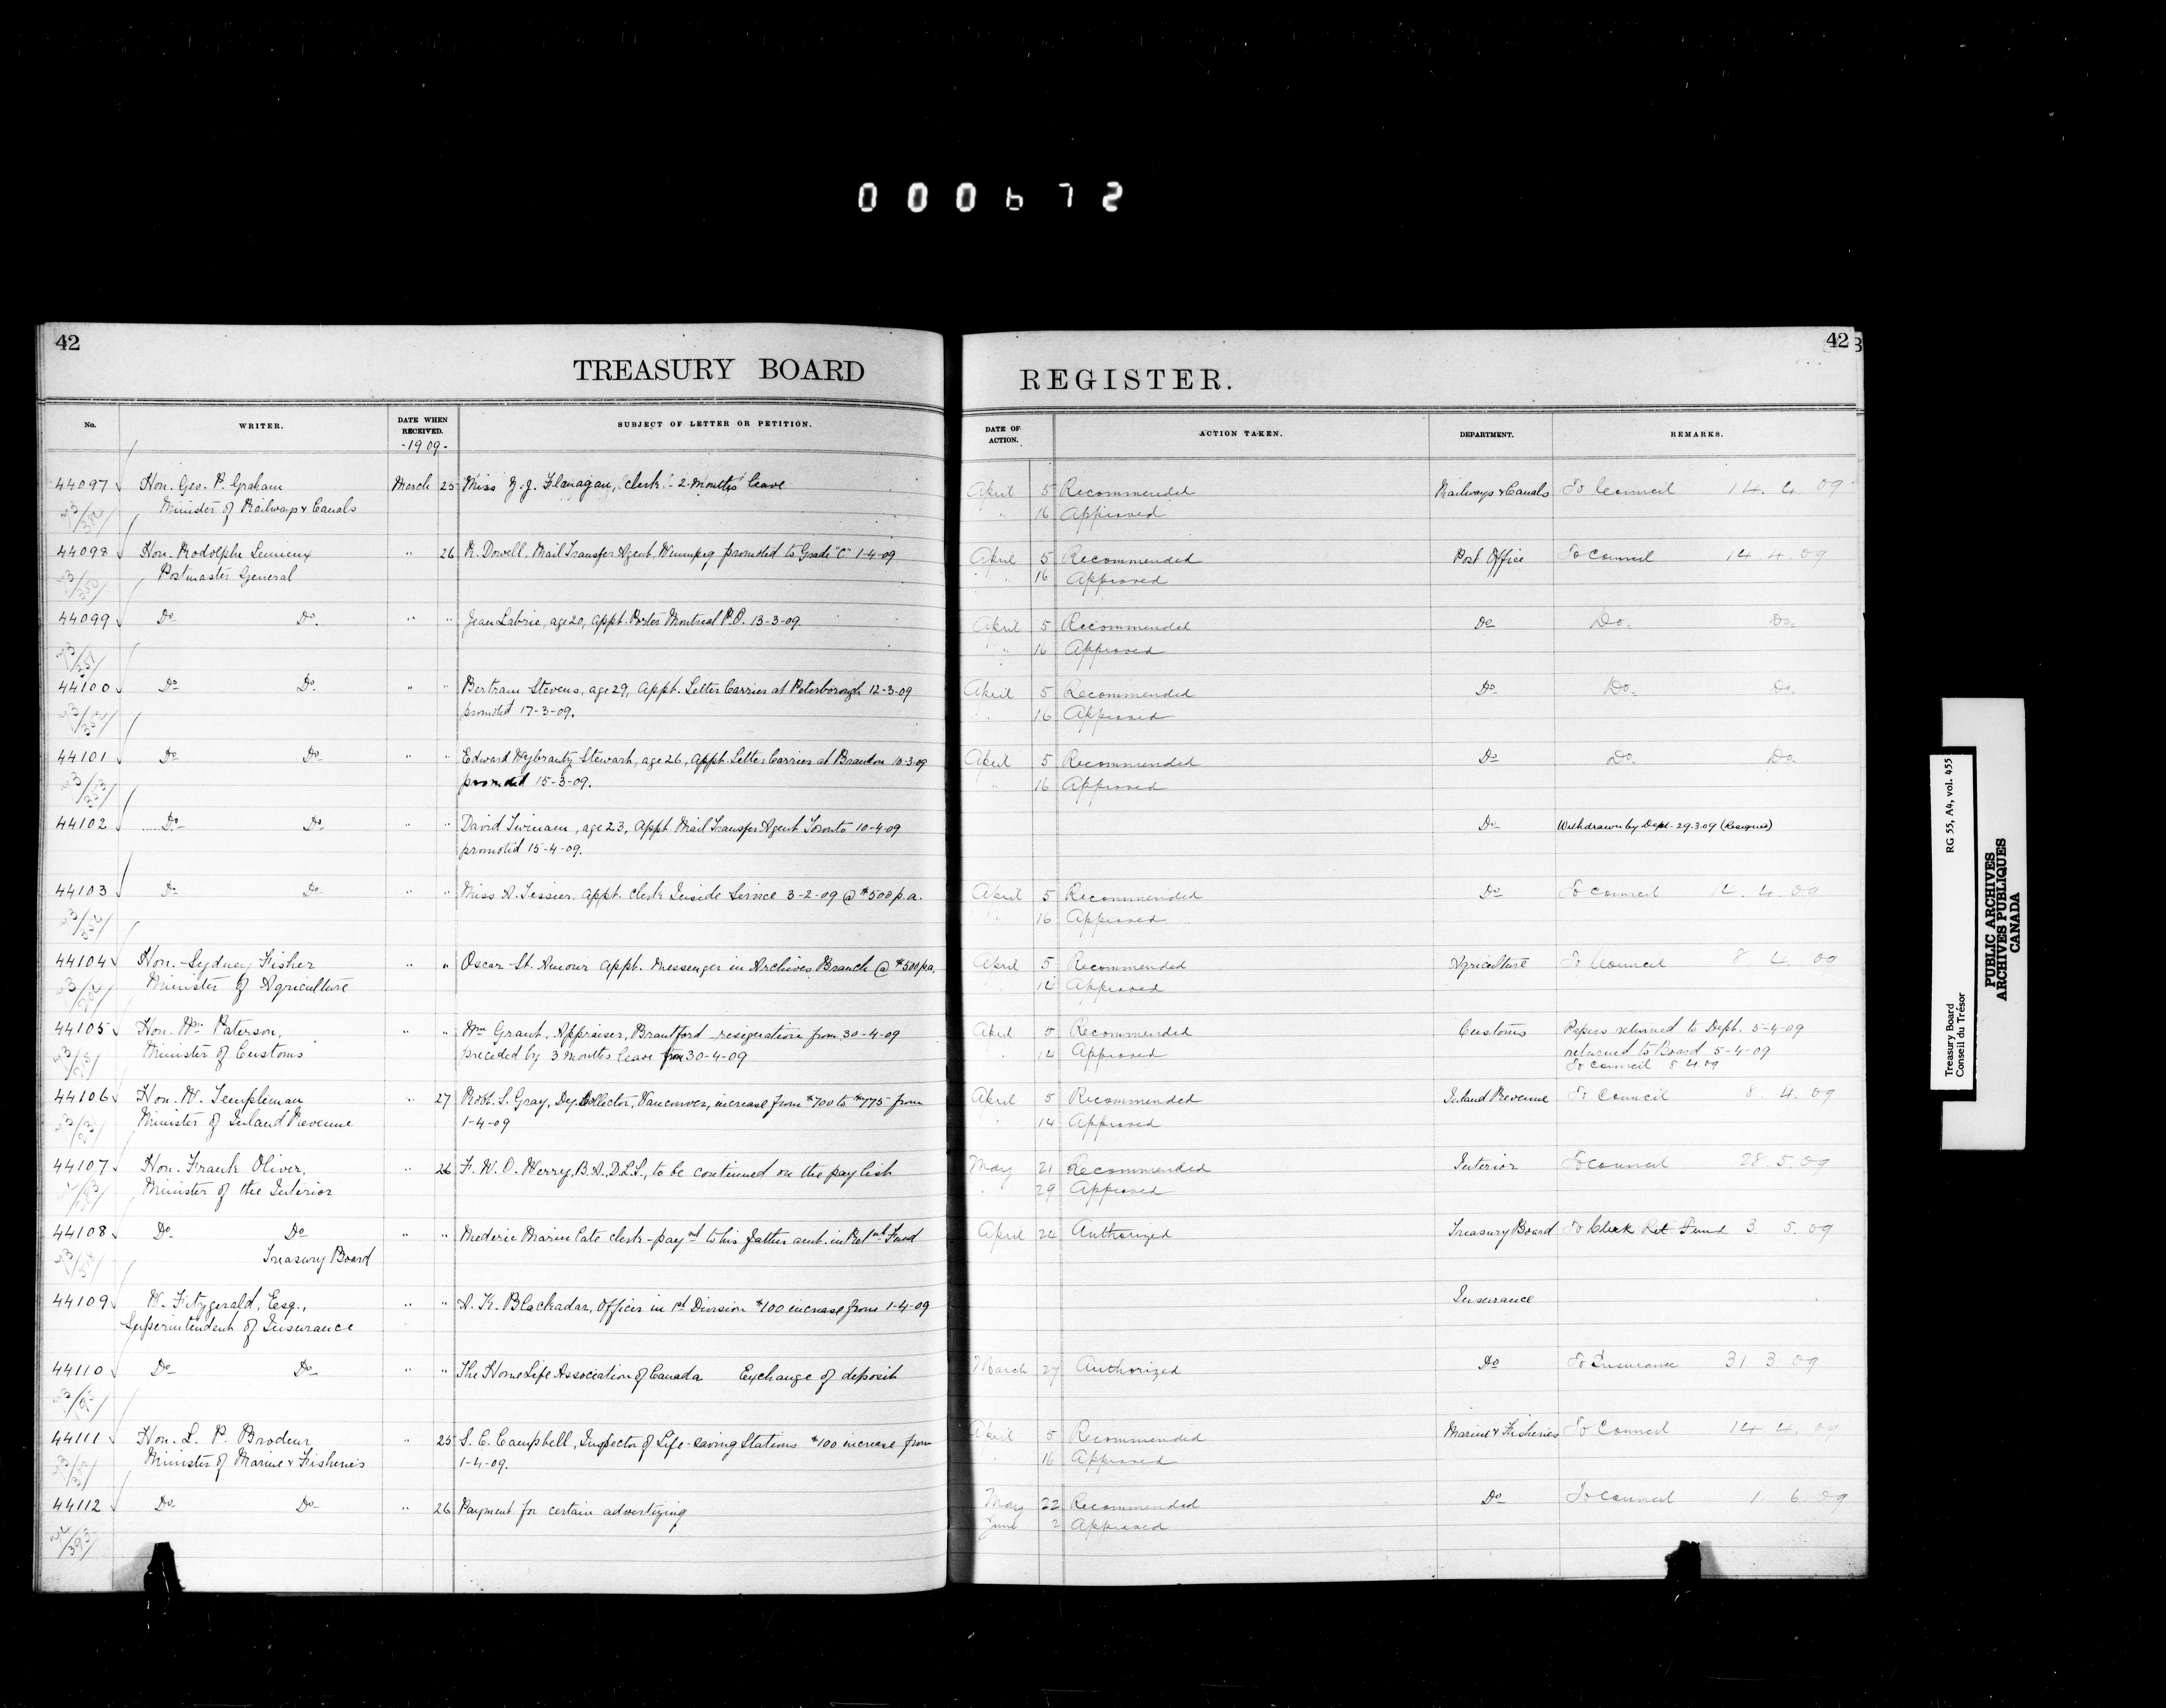 000672
42
TREASURY BOARD
REGISTER.
42
No. WRITER. DATE WHEN RECEIVED. SUBJECT OF LETTER OR PETITION. DATE OF ACTION. ACTION TAKEN. DEPARTMENT. REMARKS.
-1909-
44097 Hon. Geo. P. Graham March 25 Miss J. Flanagan, clerk - 2 months leave April 5 Recommended Railways & Canals To Council 14. 4. 09
Minister of Railways & Canals " 16 Approved
44098 Hon. Rodolphe Lemieux " 26 R. Dowell, Mail Transfer Agent, Winnipeg promoted to Grade "C" 1-4-09 April 5 Recommended Post Office To Council 14. 4. 09
Postmaster General " 16 Approved
44099 Do Do. " " Jean Labrie, age 20, appt. Porter Montreal P.O. 13-3-09. April 5 Recommended Do Do. Do.
" 16 Approved
44100 Do Do. " " Bertram Stevens, age 29, appt. Letter Carrier at Peterborough 12-3-09 April 5 Recommended Do. Do. Do.
promoted 17-3-09. " 16 Approved
44101 Do Do " " Edward Stewart, age 26, appt. Letter Carrier at Brandon 10-3-09 April 5 Recommended Do Do. Do.
promoted 15-3-09. " 16 Approved
44102 Do Do " " David age 23, appt. Mail Transfer Agent Toronto 10-4-09 Do Withdrawn by Dept. 29.3.09 (Resigned)
promoted 15-4-09.
44103 Do Do " " Miss A. Tessier, appt. clerk Inside Service 3-2-09 @ $500 p.a. April 5 Recommended Do To Council 14. 4. 09
" 16 Approved
44104 Hon. Sydney Fisher " " Oscar St. Amour appt. Messenger in Archives Branch @ $500 p.a. April 5 Recommended Agriculture To Council 8 4. 09
Minister of Agriculture 14 Approved
44105 Hon. Wm. Paterson, " " Wm Grant, Appraiser, Brantford - resignation from 30-4-09 April 5 Recommended Customs Papers returned to Dept. 5-4-09
Minister of Customs preceded by 3 months leave from 30-4-09 " 14 Approved returned to Board 5-4-09
To Council 8.4.09
44106 Hon. W. Templeman " 27 Robt. S. Gray, Dy. Collector, Vancouver, increase from $700 to $775 from April 5 Recommended Inland Revenue To Council 8. 4. 09
Minister of Inland Revenue 1-4-09 " 14 Approved
44107 Hon. Frank Oliver, " 26 F. W. O. Werry, B.A., D.L.S., to be continued on the pay list May 21 Recommended Interior To Council 28. 5. 09
Minister of the Interior " 29 Approved
44108 Do Do " " Mederic Marin late clerk - paynt to his father amt. in Retnt Fund April 24 Authorized Treasury Board To Clerk Ret. Fund 3 5. 09
Treasury Board
44109 W. Fitzgerald, Esq., " " A. K. Blackadar, Officer in 1st Division $100 increase from 1-4-09 Insurance
Superintendent of Insurance
44110 Do Do " " The Home Life Association of Canada Exchange of deposit March 27 Authorized Do To Insurance 31 3. 09
44111 Hon. L. P. Brodeur " 25 S. C. Campbell, Inspector of Life-Saving Stations $100 increase from April 5 Recommended Marine & Fisheries To Council 14 4. 09
Minister of Marine & Fisheries 1-4-09. " 16 Approved
44112 Do Do " 26 Payment for certain advertizing May 22 Recommended Do To Council 1. 6. 09
June 2 Approved
Treasury Board RG 55, A4, vol. 455
Conseil du Trésor
PUBLIC ARCHIVES
ARCHIVES PUBLIQUES
CANADA